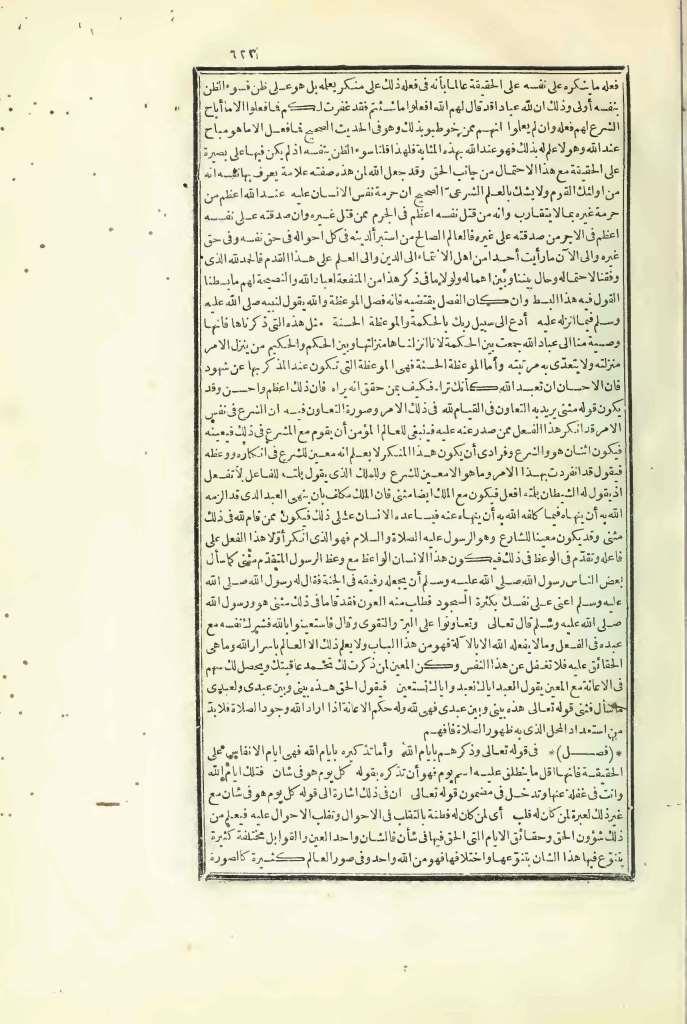 ٦٢٣
فعله ما ينكره على نفسه على الحقيقة عالما بأنه فى فعله ذلك على منكر يعلمه بل هو على ظن فسوء الظن
بنفسه أولى وذلك ان لله عبادا قد قال لهم الله افعلوا ما شئتم فقد غفرت لكم فما فعلوا الا ما أباح
الشرع لهم فعله وان لم يعلموا انهم ممن خوطبوا بذلك وهو فى الحديث الصحيح فما فعل الا ما هو مباح
عند الله وهو لا علم له بذلك فهو عند الله بهذه المثابة فلهذا قلنا سوء الظن بنفسه اذ لم يكن فيها على بصيرة
على الحقيقة مع هذا الاحتمال من جانب الحق وقد جعل الله لمن هذه صفته علامة يعرف بها نفسه انه
من اولئك القوم ولا يشك بالعلم الشرعى الصحيح ان حرمة نفس الانسان عليه عند الله اعظم من
حرمة غيره بما لا يتقارب وانه من قتل نفسه اعظم فى الجرم ممن قتل غيره وان صدقته على نفسه
اعظم فى الاجر من صدقته على غيره فالعالم الصالح من استبرأ لدينه فى كل احواله فى حق نفسه وفى حق
غيره والى الآن ما رأيت أحدا من اهل الانتماء الى الدين والى العلم على هذا القدم فالحمد لله الذى
وفقنا لاحتماله وحال بيننا وبين اهماله ولولا ما فى ذكر هذا من المنفعة لعباد الله والنصيحة لهم ما بسطنا
القول فيه هذا البسط وان كان الفصل يقتضيه فانه فصل الموعظة والله يقول لنبيه صلى الله عليه
وسلم فيما انزله عليه أدع الى سبيل ربك بالحكمة والموعظة الحسنة مثل هذه التى ذكرناها فانها
وصية منا الى عباد الله جمعت بين الحكمة لانا انزلناها منزلتها وبين الحكم والحكيم من ينزل الامر
منزلته ولا يتعدى به مرتبته وأما الموعظة الحسنة فهى الموعظة التى تكون عند المذكر بها عن شهود
فان الاحسان ان تعبد الله كأنك تراه فكيف بمن حقق انه يراه فان ذلك اعظم واحسن وقد
يكون قوله مثنى يريد به التعاون فى القيام لله فى ذلك الامر وصورة التعاون فيه ان الشرع فى نفس
الامر قد انكر هذا الفعل ممن صدر عنه عليه فينبغى للعالم المؤمن أن يقوم مع المشرع فى ذلك فيعينه
فيكون اثنان هو والشرع وفرادى أن يكون هذا المنكر لا يعلم انه معين للشرع فى انكاره ووعظه
فيقول قد انفردت بهذا الامر وما هو الا معين للشرع وللملك الذى يقول بلمته للفاعل لا تفعل
اذ يقول له الشيطان بلمته افعل فيكون مع الملك ايضا مثنى فان الملك مكلف بان ينهى العبد الذى قد الزمه
الله به أن ينهاه فيما كلفه الله به أن ينهاه عنه فيساعده الانسان على ذلك فيكون ممن قام لله فى ذلك
مثنى وقد يكون معينا للشارع وهو الرسول عليه الصلاة والسلام فهو الذى انكر أولا هذا الفعل على
فاعله وتقدم فى الوعظ فى ذلك فيكون هذا الانسان الواعظ مع وعظ الرسول المتقدم مثنى كما سأل
بعض الناس رسول الله صلى الله عليه وسلم أن يجعله رفيقه فى الجنة فقال له رسول الله صلى الله
عليه وسلم اعنى على نفسك بكثرة السجود فطلب منه العون فقد قاما فى ذلك مثنى هو ورسول الله
صلى الله عليه وسلم قال تعالى وتعاونوا على البر والتقوى وقال فاستعينوا بالله فشرك نفسه مع
عبده فى الفعل وما لا يفعله الله الا بالآلة فهو من هذا الباب ولا يعلم ذلك الا العالم باسرار الله وما هى
الحقائق عليه فلا تغفل عن هذا النفس وكن المعين لمن ذكرت لك تحمد عاقبتك ويحصل لك سهم
فى الاعانة مع المعين يقول العبد اياك نعبد واياك نستعين فيقول الحق هذه بينى وبين عبدى ولعبدى
ما سأل فثنى قوله تعالى هذه بينى وبين عبدى فهى لله وله حكم الاعانة اذا اراد الله وجود الصلاة فلا بد
من استعداد المحل الذى به ظهور الصلاة فافهم
*(فصل)* فى قوله تعالى وذكرهم بايام الله وأما تذكيره بايام الله فهى ايام الانفاس على
الحقيقة فانها اقل ما ينطلق عليه اسم يوم فهو أن تذكره بقوله كل يوم هو فى شان فتلك ايام الله
وانت فى غفلة عنها وتدخل فى مضمون قوله تعالى ان فى ذلك اشارة الى قوله كل يوم هو فى شان مع
غير ذلك لعبرة لمن كان له قلب أى لمن كان له فطنة بالتقلب فى الاحوال وتقلب الاحوال عليه فيعلم من
ذلك شؤون الحق وحقائق الايام التى الحق فيها فى شأن فالشان واحد العين والقوابل مختلفة كثيرة
يتنوع فيها هذا الشان بتنوعها واختلافها فهو من الله واحد وفى صور العالم كثيرة كالصورة